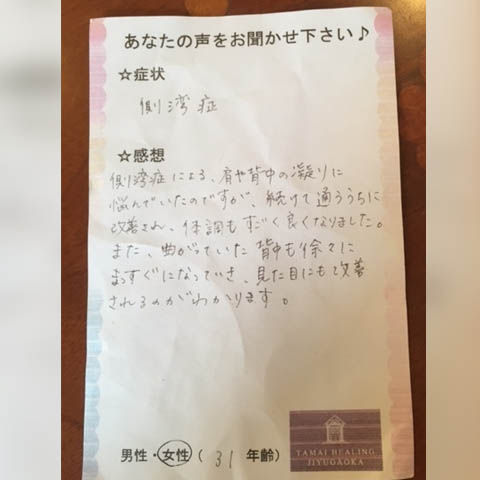 あなたの声をお聞かせ下さい♪
☆症状
側湾症
☆感想
側湾症による、肩や背中の凝りに
悩んでいたのですが、続けて通ううちに
改善され、体調もすごく良くなりました。
また、曲がっていた背中も徐々に
まっすぐになっていき、見た目にも改善
されるのがわかります。
男性・女性（ 31 年齢）
TAMAI HEALING
JIYUGAOKA